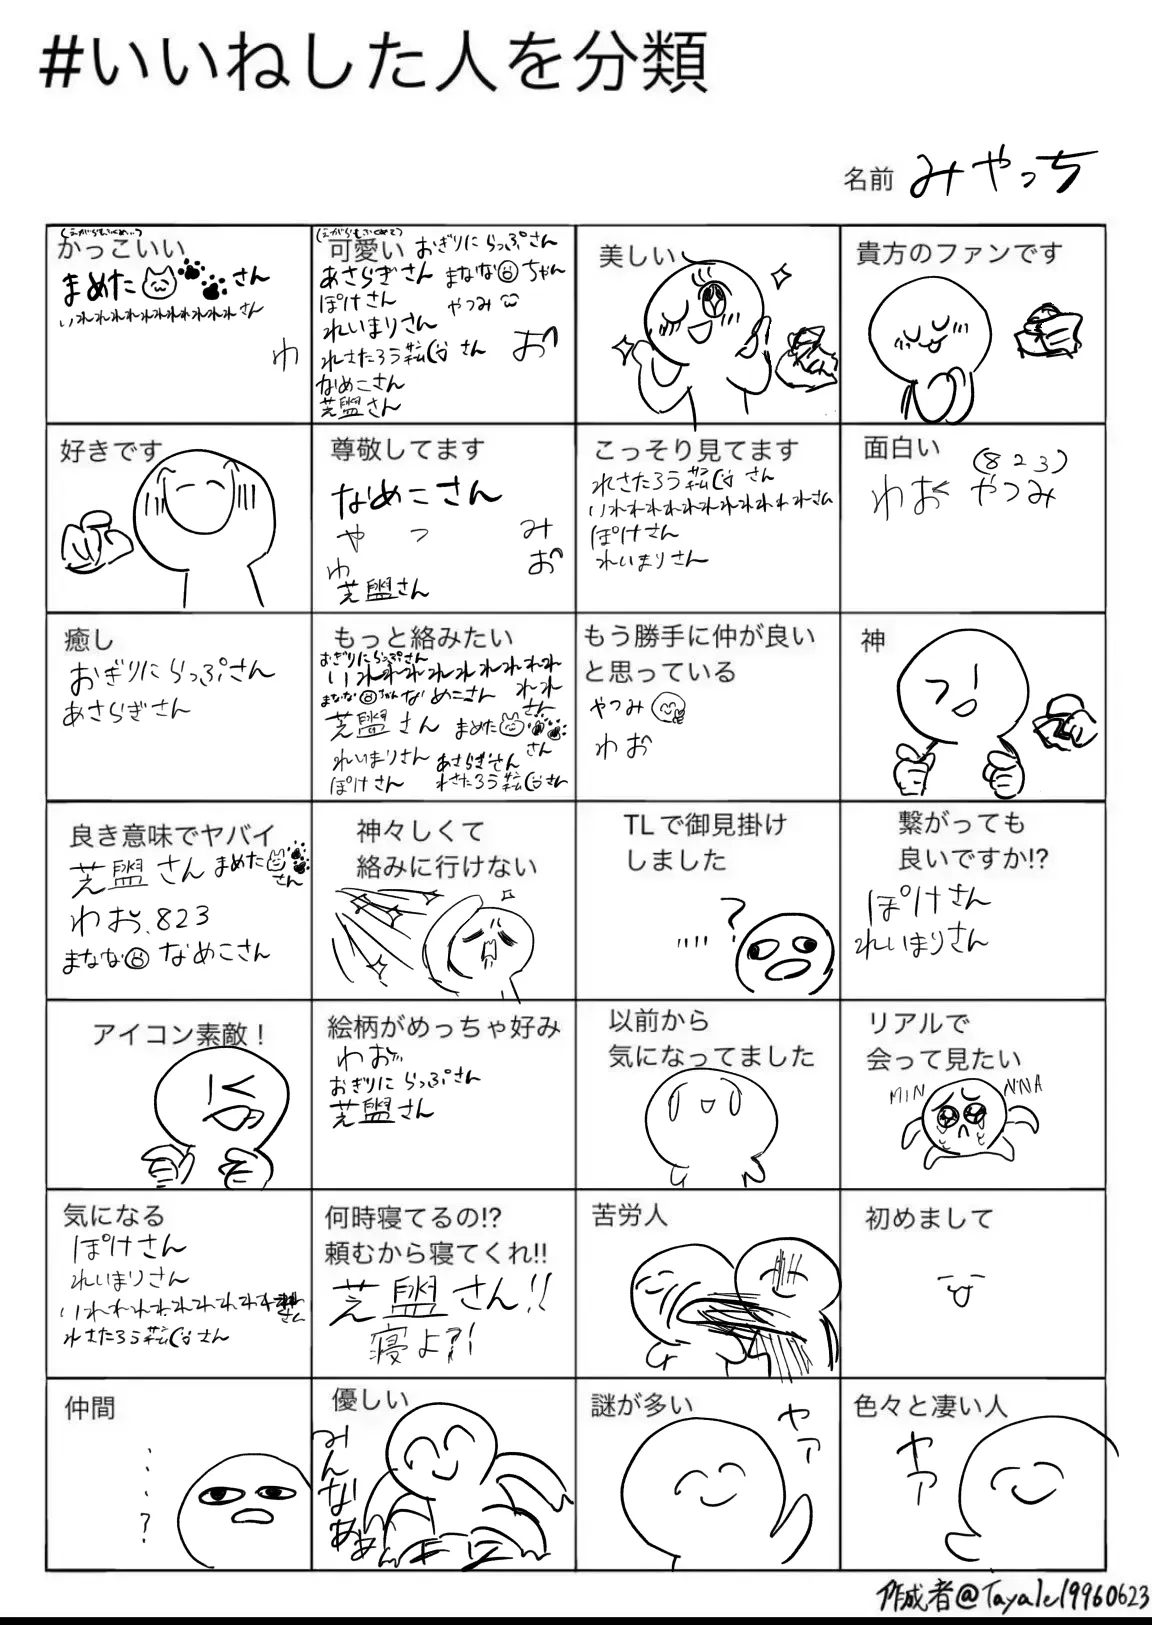 #いいねした人を分類
名前 みやっち
かっこいい
まめたさん
いれれれれれれれれれれさん
わ
可愛い おぎりにらっぷさん
あさらぎさん まななちゃん
ぽけさん やつみ
れいまりさん
さん お
なめこさん
芝盥さん
美しい
貴方のファンです
好きです
尊敬してます
なめこさん
や っ み
わ お
芝盥さん
こっそり見てます
さん
ぽけさん
れいまりさん
面白い
わお やつみ (823)
癒し
おぎりにらっぷさん
あさらぎさん
もっと絡みたい
おぎりにらっぷさん
まなな なめこさん
芝盥さん まめたさん
れいまりさん あさらぎさん
ぽけさん
もう勝手に仲が良い
と思っている
やつみ
わお
神
良き意味でヤバイ
芝盥さん まめたさん
わお.823
まなな なめこさん
神々しくて
絡みに行けない
TLで御見掛け
しました
?
繋がっても
良いですか!?
ぽけさん
れいまりさん
アイコン素敵!
絵柄がめっちゃ好み
わお
おぎりにらっぷさん
芝盥さん
以前から
気になってました
リアルで
会って見たい
MIN NNA
気になる
ぽけさん
れいまりさん
さん
何時寝てるの!?
頼むから寝てくれ!!
芝盥さん!!
寝よ?!
苦労人
初めまして
仲間
?
優しい
みんなぁぁぁん
謎が多い
ヤァ
色々と凄い人
ヤァ
作成者@Tayale19960623